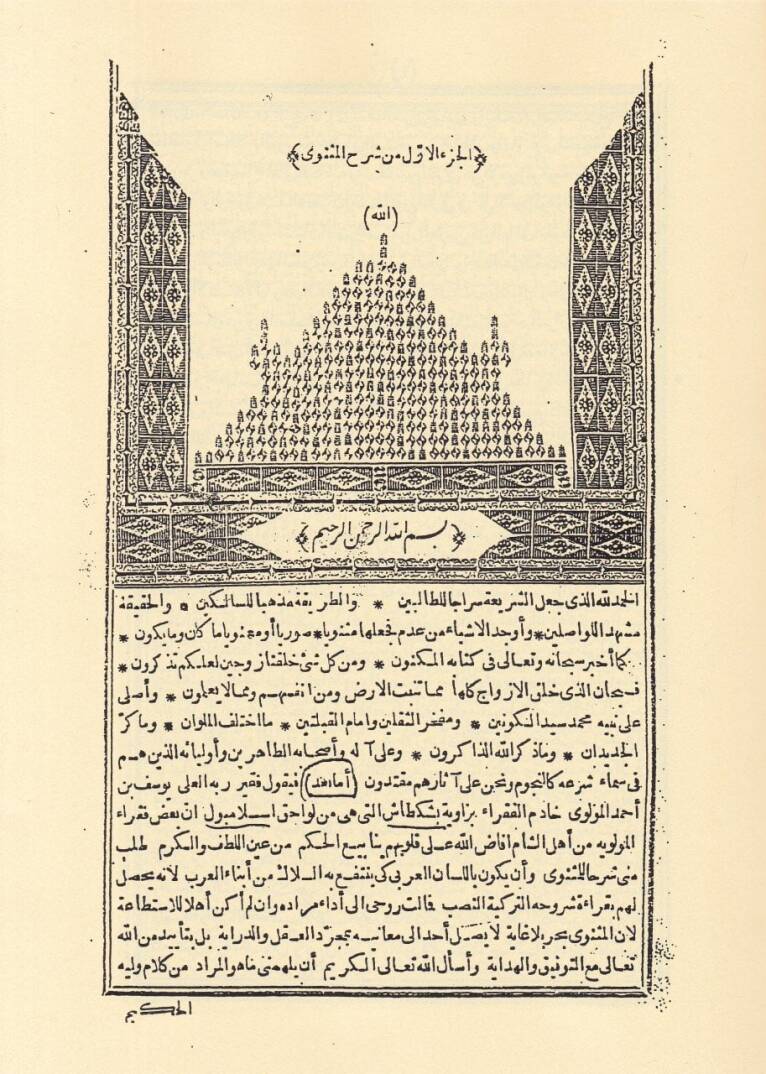 ﴿الجزء الاول من شرح المثنوى﴾
(الله)
﴿بسم الله الرحمن الرحيم﴾
الحمد لله الذى جعل الشريعة سراجا للطالبين * والطريقة مذهبا للسالكين * والحقيقة
مشهد اللواصلين * وأوجد الاشياء من عدم فجعلها مثنويا * صوريا أو معنويا ما كان وما يكون *
كما أخبر سبحانه وتعالى فى كتابه المكنون * ومن كل شئ خلقنا زوجين لعلكم تذكرون *
فسبحان الذى خلق الازواج كلها مما تنبت الارض ومن أنفسهم ومما لا يعلمون * وأصلى
على نبيه محمد سيد الكونين * ومفخر الثقلين وامام القبلتين * ما اختلف الملوان * وما كرّ
الجديدان * وما ذكر الله الذاكرون * وعلى آله وأصحابه الطاهرين وأوليائه الذين هم
فى سماء شرعه كالنجوم ونحن على آثارهم مقتدون (أما بعد) فيقول فقير ربه العلى يوسف بن
أحمد المولوى خادم الفقراء بزاوية بشكطاش التى هى من لواحق اسلامبول ان بعض فقراء
المولويه من أهل الشام افاض الله على قلوبهم ينابيع الحكم من عين اللطف والكرم طلب
منى شرحا للمثنوى وأن يكون باللسان العربى كى ينتفع به السلاك من أبناء العرب لانه يحصل
لهم بقراءة شروحه التركية النصب فمالت روحى الى أداء مراده وان لم أكن أهلا للاستطاعة
لان المثنوى بحر بلا غاية لا يصل أحد الى معانيه بمجرّد العقل والدراية بل بتأييد من الله
تعالى مع التوفيق والهداية وأسأل الله تعالى الكريم أن يلهمنى ما هو المراد من كلام وليه
الحكيم